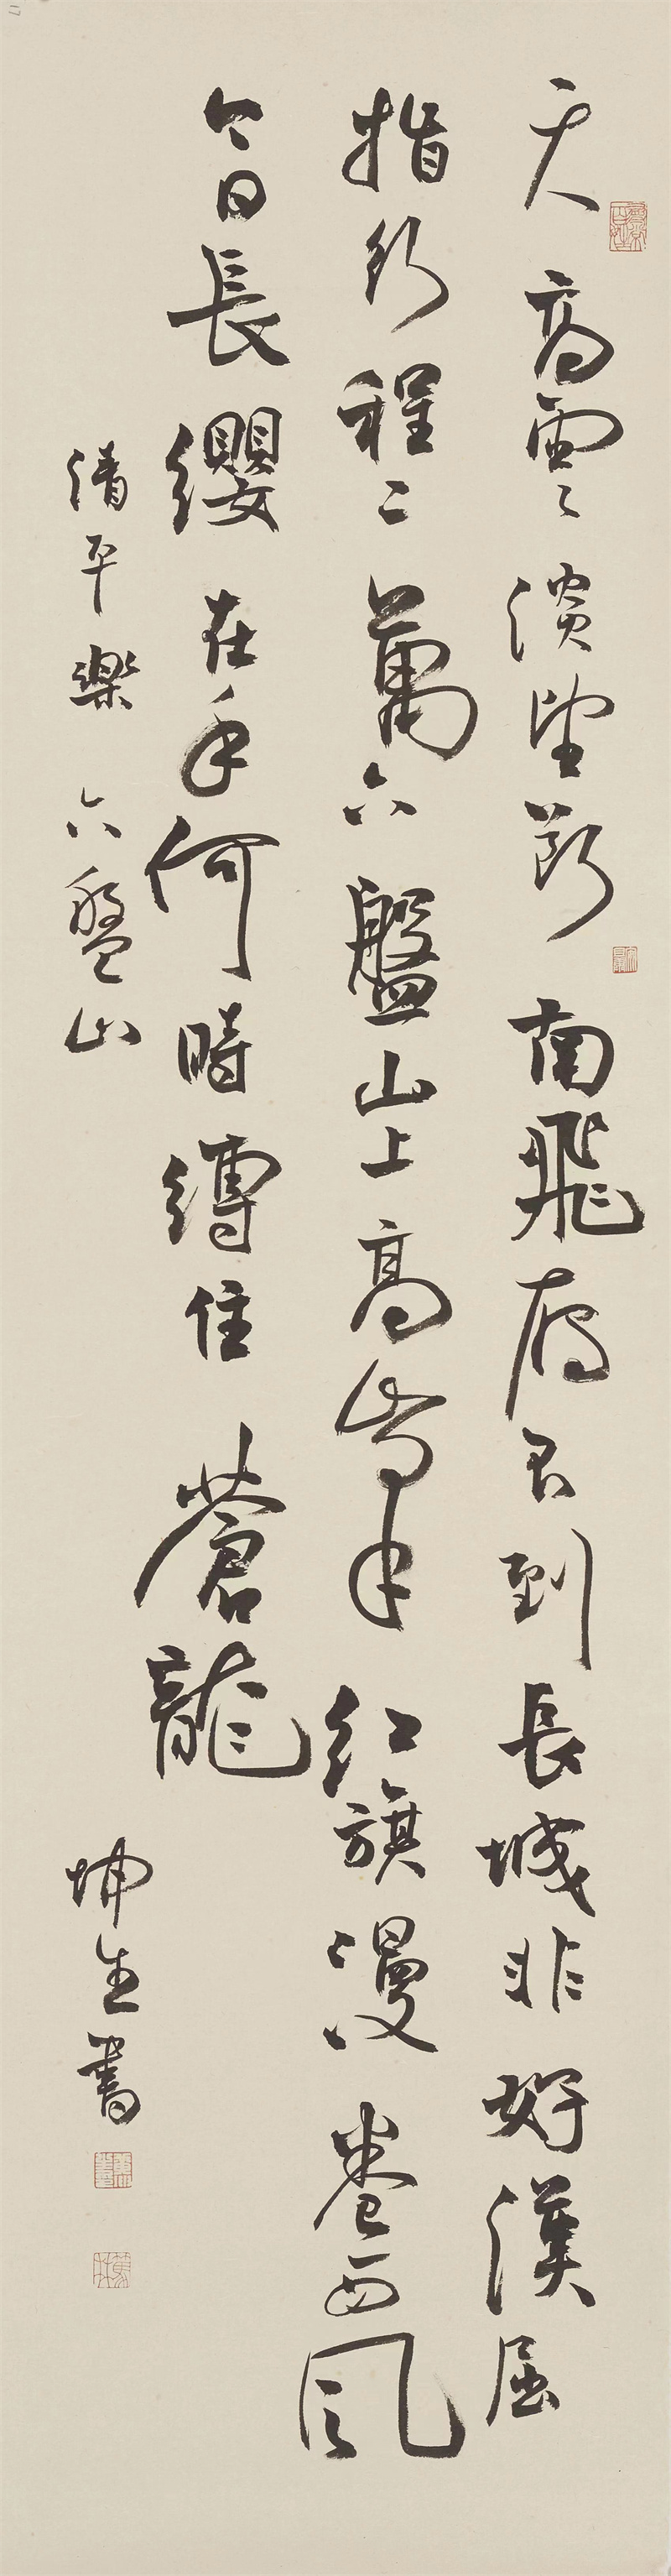 天高雲淡望斷南飛雁不到長城非好漢屈
指行程二萬六盤山上高峰紅旗漫卷西風
今日長纓在手何時縛住蒼龍
清平樂 六盤山 坤生書